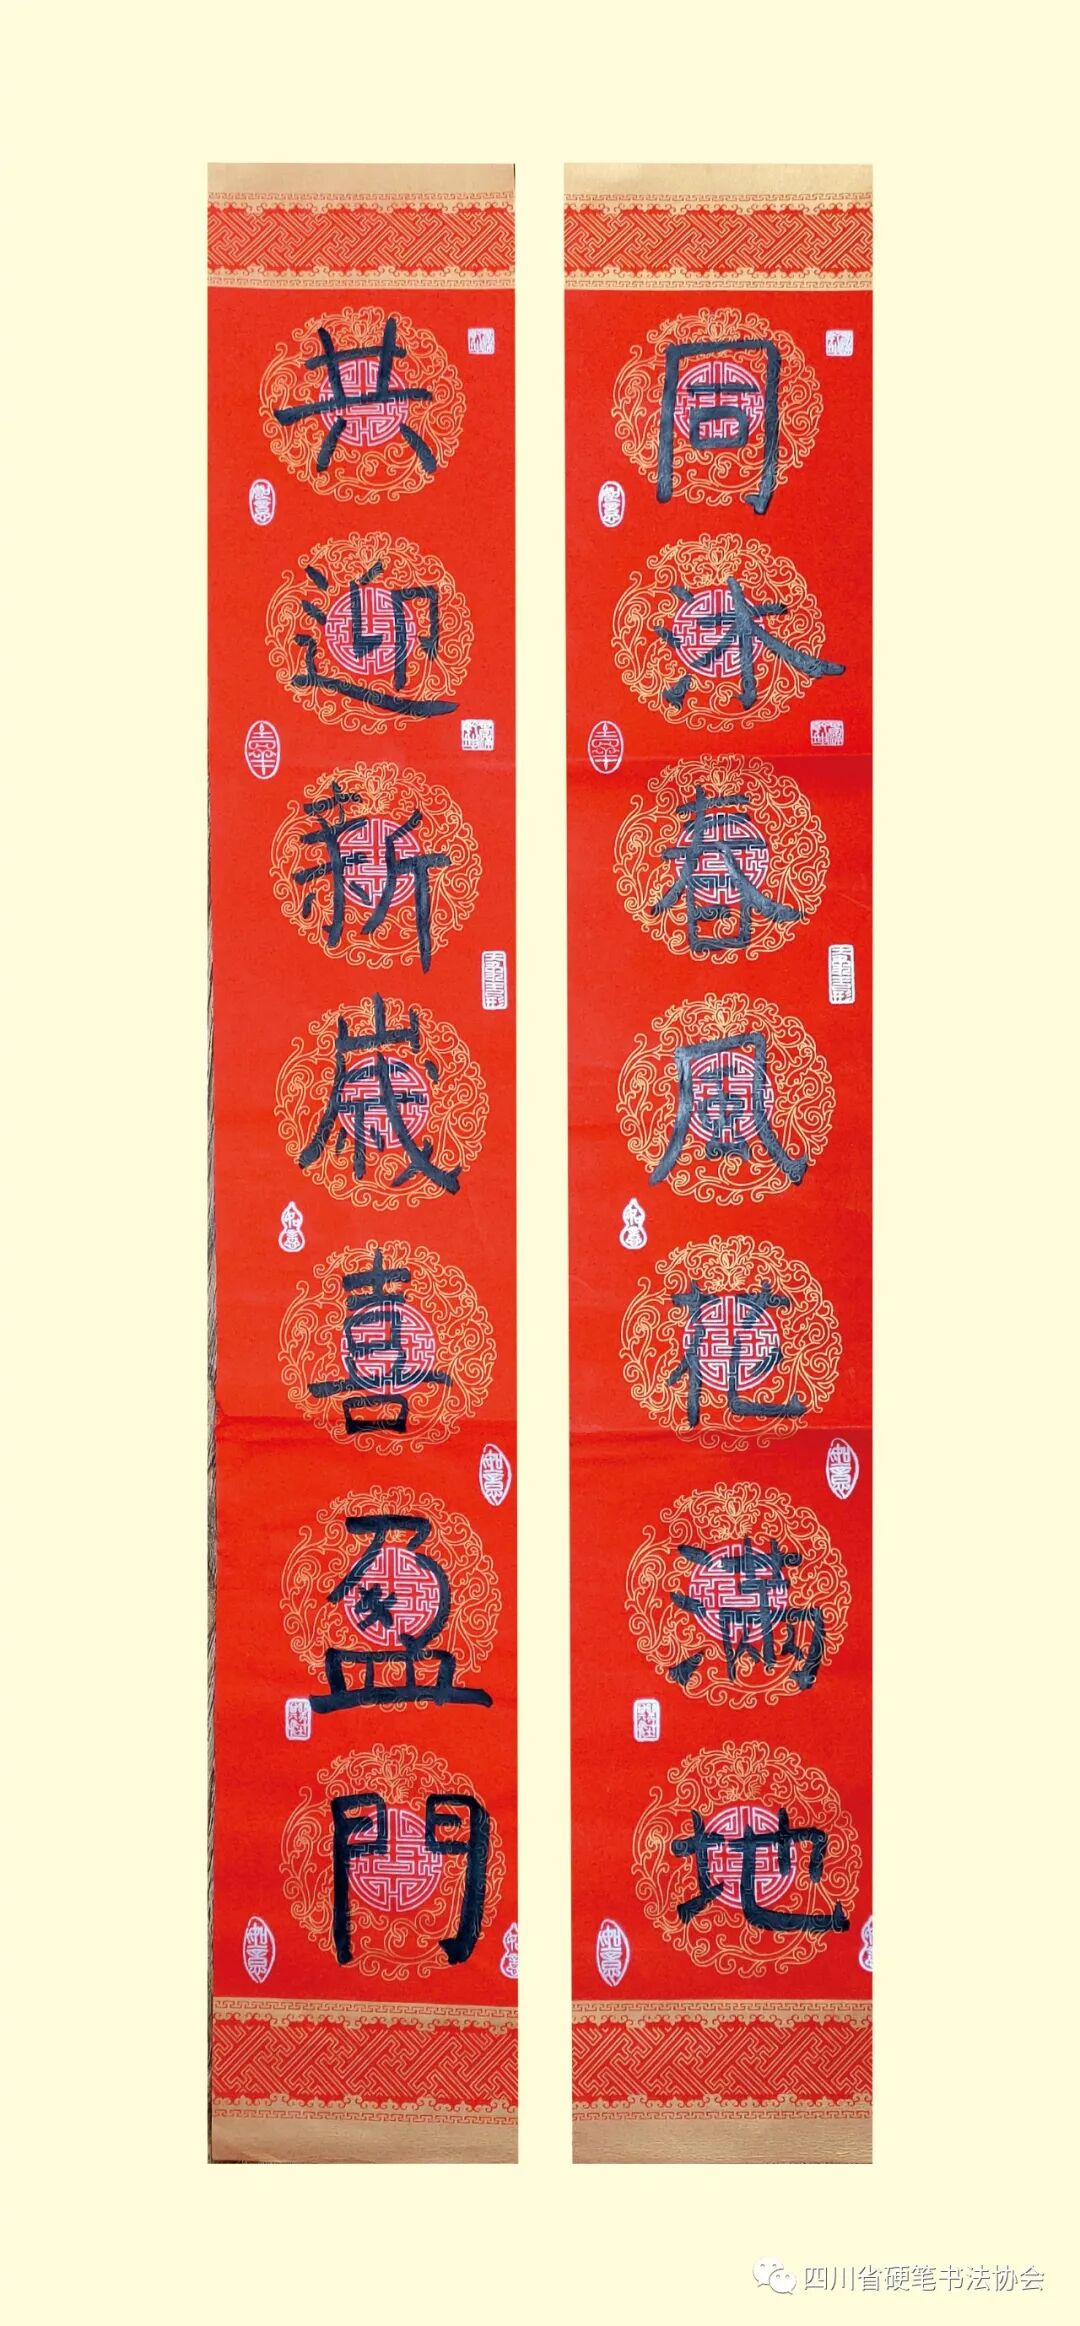 同沐春風花滿地
共迎新歲喜盈門
四川省硬笔书法协会